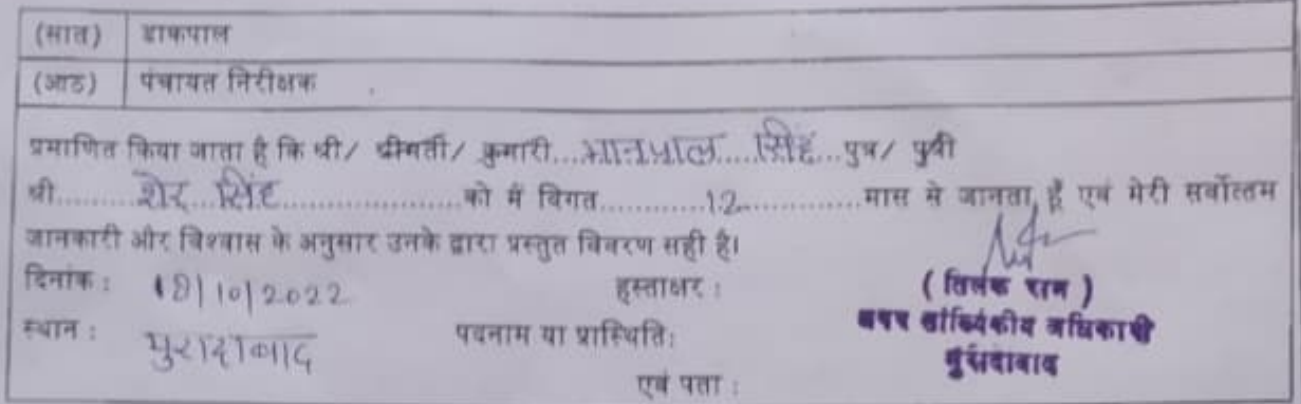 (सात) डाकपाल
(आठ) पंचायत निरीक्षक
प्रमाणित किया जाता है कि श्री/ श्रीमती/ कुमारी...भानपाल.....सिंह...पुत्र/ पुत्री
श्री.........शेर...सिंह.....................को मैं विगत............12..............मास से जानता हूँ एवं मेरी सर्वोत्तम
जानकारी और विश्वास के अनुसार उनके द्वारा प्रस्तुत विवरण सही है।
दिनांक : |10|2022 हस्ताक्षर :
( तिलक राम )
स्थान : मुरादाबाद पदनाम या प्रास्थिति:
अपर सांख्यिकीय अधिकारी
मुरादाबाद
एवं पता :